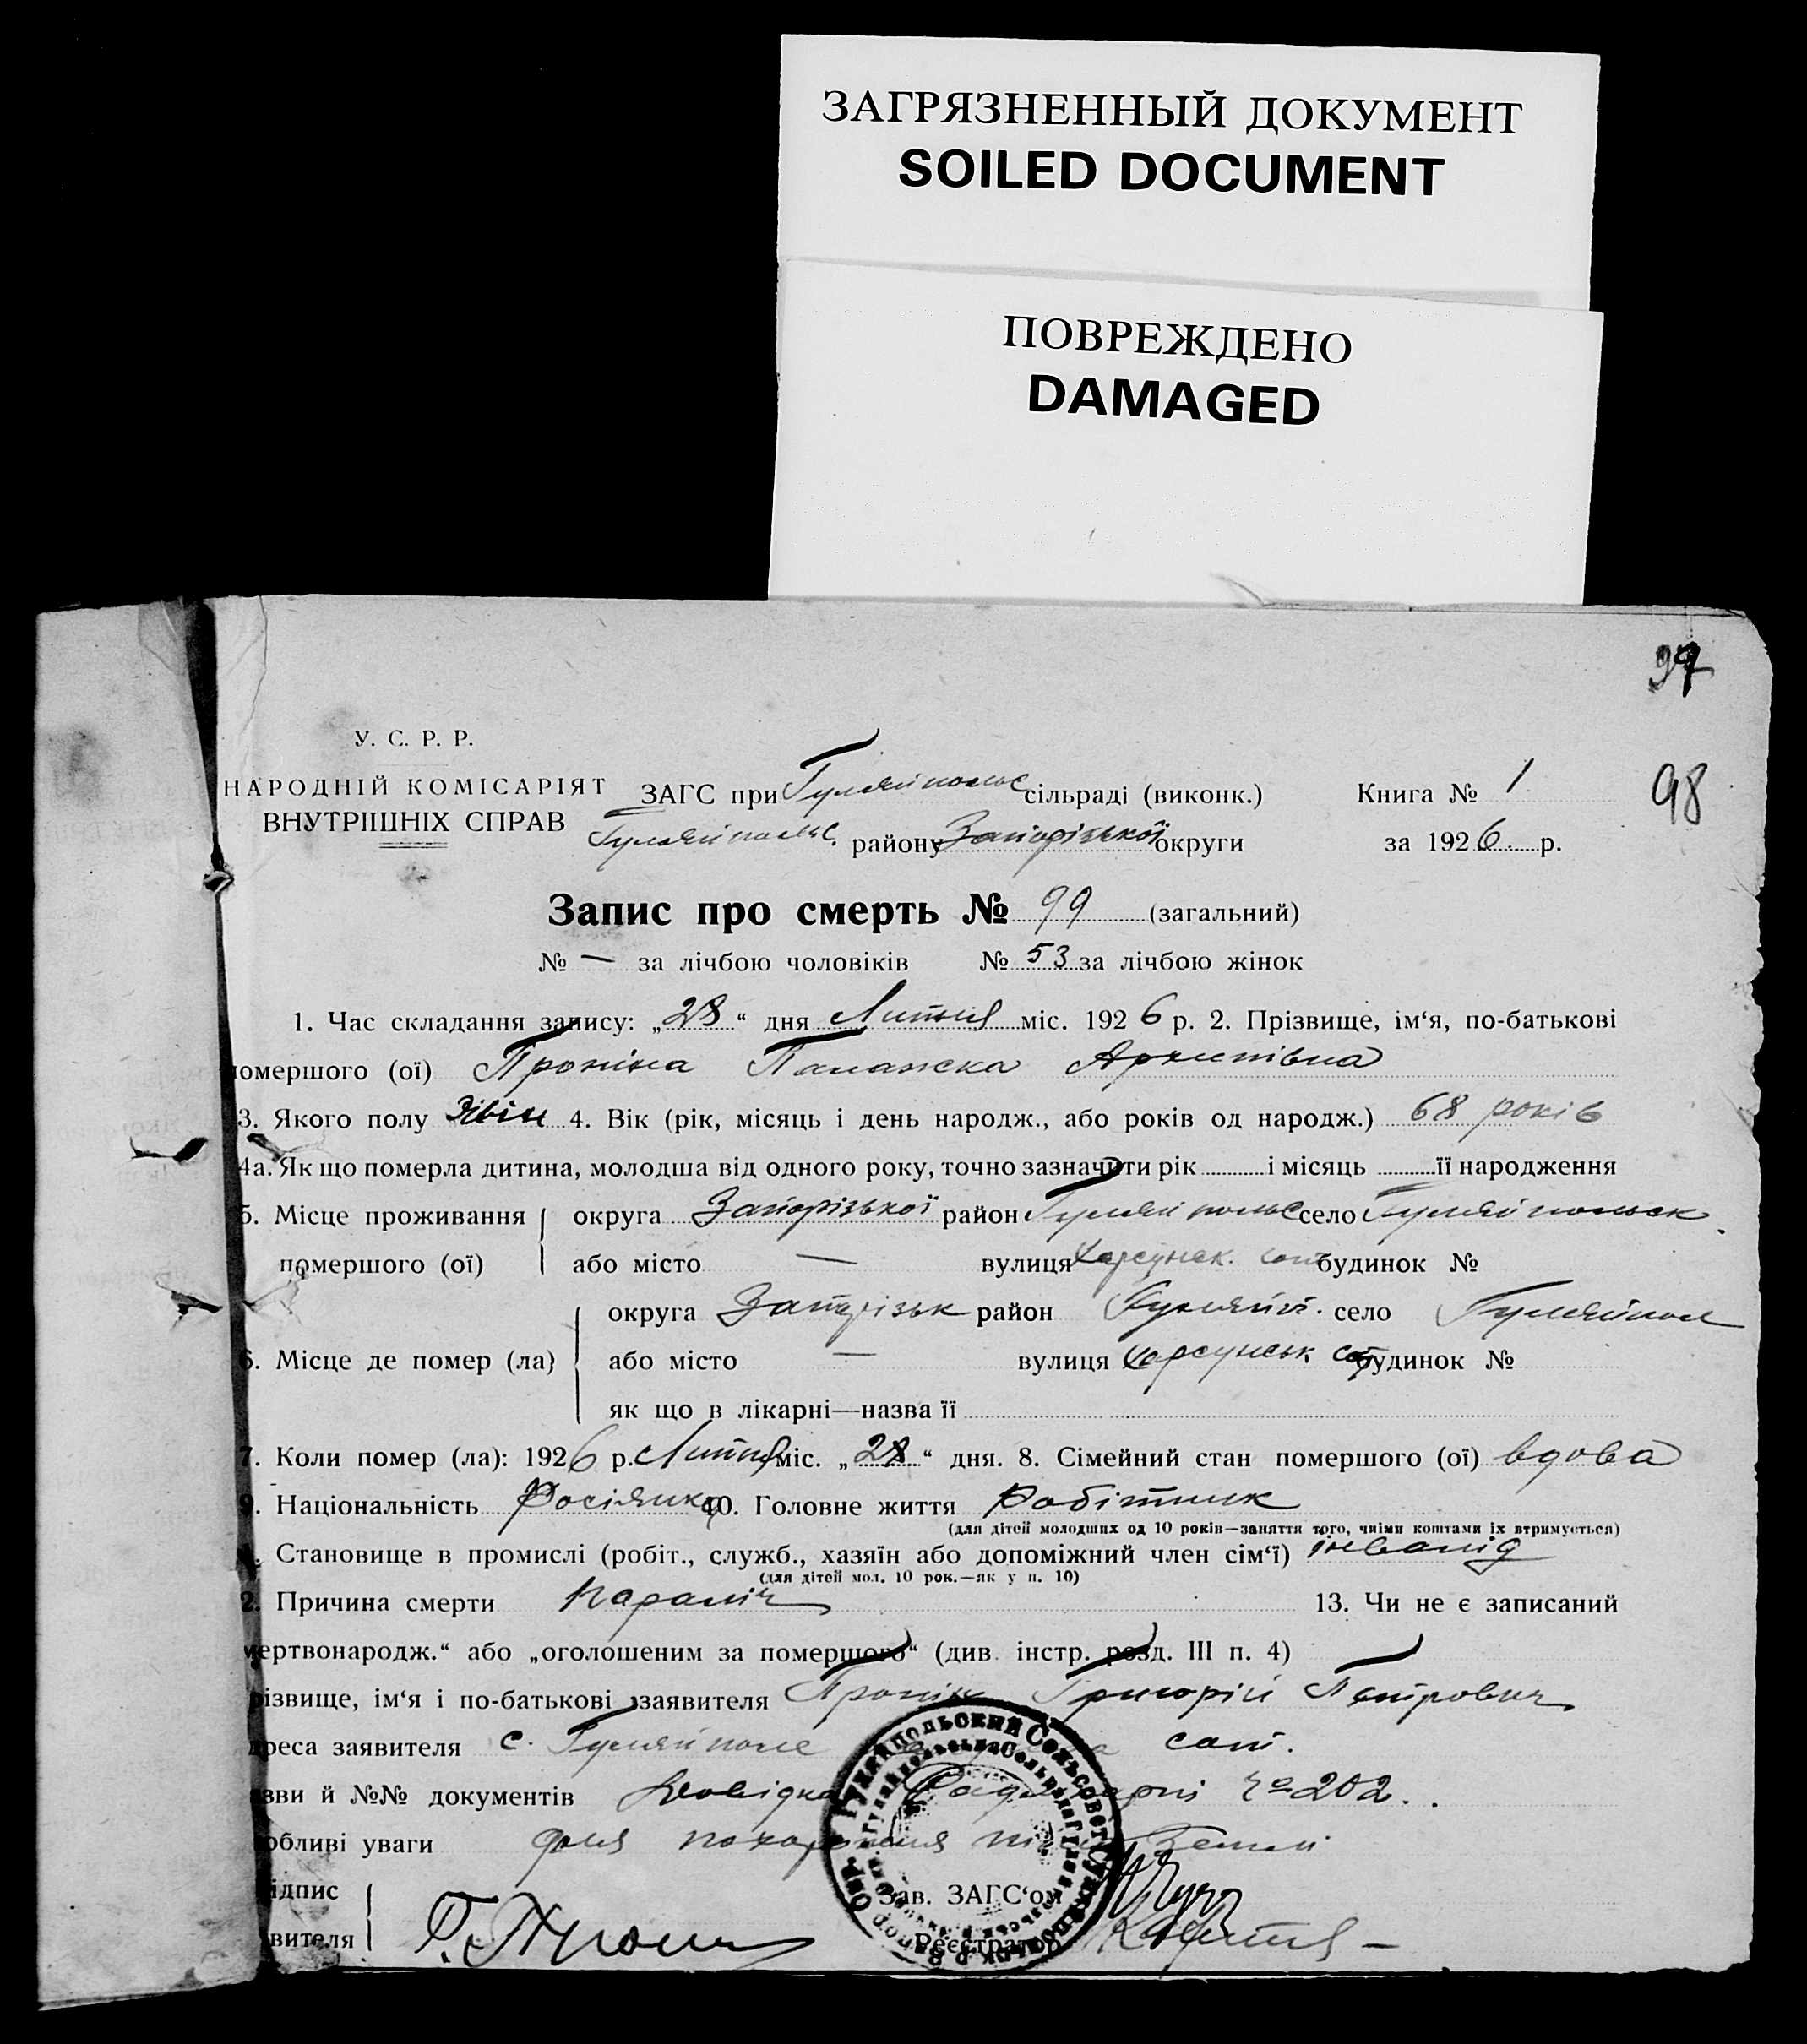 ЗАГРЯЗНЕННЫЙ ДОКУМЕНТ
SOILED DOCUMENT
ПОВРЕЖДЕНО
DAMAGED
97
98
У. С. Р. Р.
НАРОДНІЙ КОМІСАРІЯТ
ВНУТРІШНІХ СПРАВ
ЗАГС при Гуляйпольс сільраді (виконк.)
Гуляйпольс. району Запорізької округи
Книга № 1
за 1926 р.
Запис про смерть № 99 (загальний)
№ — за лічбою чоловіків № 53 за лічбою жінок
1. Час складання запису: „28“ дня Липня міс. 1926 р. 2. Прізвище, ім‘я, по-батькові
помершого (ої) Проніна Палажка Архипівна
3. Якого полу 4. Вік (рік, місяць і день народж., або років од народж.) 68 років
4а. Як що померла дитина, молодша від одного року, точно зазначити рік і місяць її народження
5. Місце проживання помершого (ої)
округа Запорізької район Гуляйпольс село Гуляйпольск.
або місто — вулиця будинок №
6. Місце де помер (ла)
округа Запорізьк район Гуляйп. село Гуляйпол
або місто — вулиця будинок №
як що в лікарні—назва її
7. Коли помер (ла): 1926 р. Липня міс. „28“ дня. 8. Сімейний стан помершого (ої) вдова
9. Національність Росіянка 10. Головне життя Робітник
(для дітей молодших од 10 років—заняття того, чиїми коштами їх втримується)
Становище в промислі (робіт., служб., хазяїн або допоміжний член сім‘ї) інвалід
(для дітей мол. 10 рок.—як у п. 10)
2. Причина смерти параліч 13. Чи не є записаний
мертвонародж.“ або „оголошеним за помершого“ (див. інстр. розд. III п. 4)
різвище, ім‘я і по-батькові заявителя Пронін Григорій Петрович
дреса заявителя с. Гуляйполе сот.
зви й №№ документів Довідка №202.
обливі уваги для
ідпис
вителя Г. Пронин
Зав. ЗАГС‘ом
Реєстратор
Гуляйпольский Сельсовет